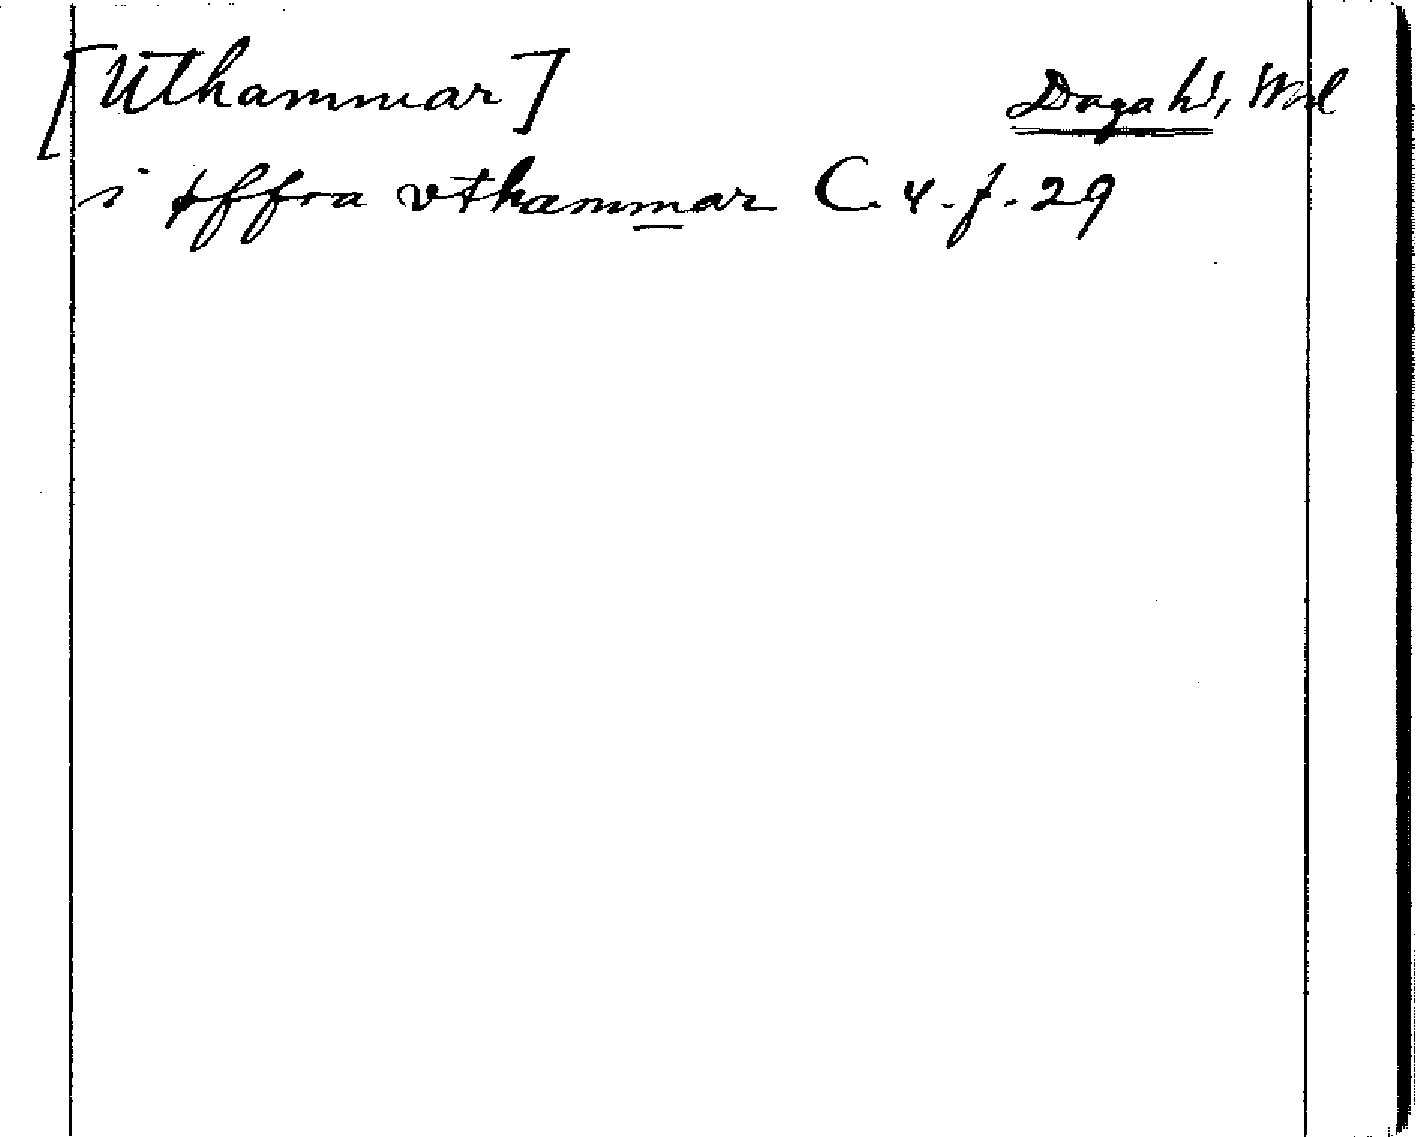 [Uthammar] Daga hd, Wml
i øffra vthammar C. 4. f. 29